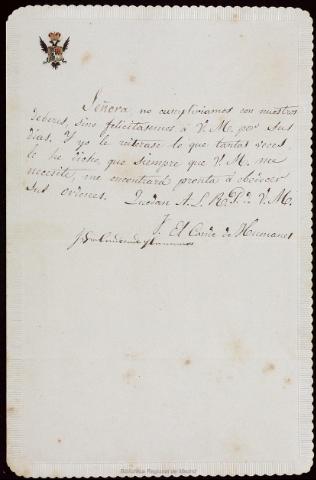 Señora no cumpliriamos con nuestros
deberes, sino felicitasemos á V. M. por sus
dias. Y yo le reiterase lo que tantas veces
le he dicho que siempre que V. M. me
necesite, me encontrará pronta á obedecer
sus ordenes. Quedan A. L. R. P. de V. M.
El Conde de Humanes
Biblioteca Regional de Madrid